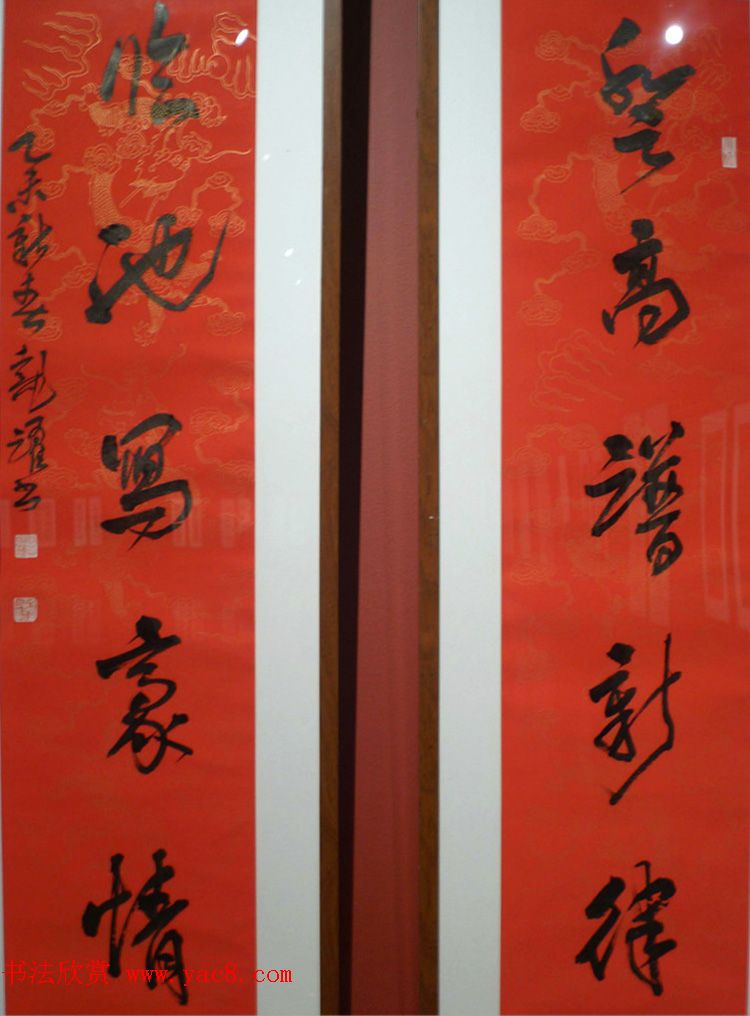 登高譜新律
臨池寫豪情
乙未新春書
书法欣赏 www.yac8.com